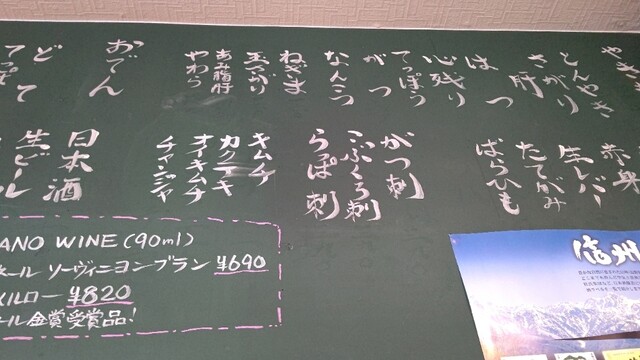 やき
とんやき
さがり
さ肝
はつ
心残り
てっぽう
がつ
なんこつ
ねぎま
玉さがり
あみ脂肝
やわう
おでん
ど て
てっぽ
赤身
生レバー
たてがみ
ばらひも
がつ刺
こぶくろ刺
らっぽ刺
キムチ
カクテキ
オーキムチ
チャンジャ
日本酒
生ビール
ANO WINE(90ml)
ール ソーヴィニヨンブラン ¥690
ルロー ¥820
ール金賞受賞品!
信州